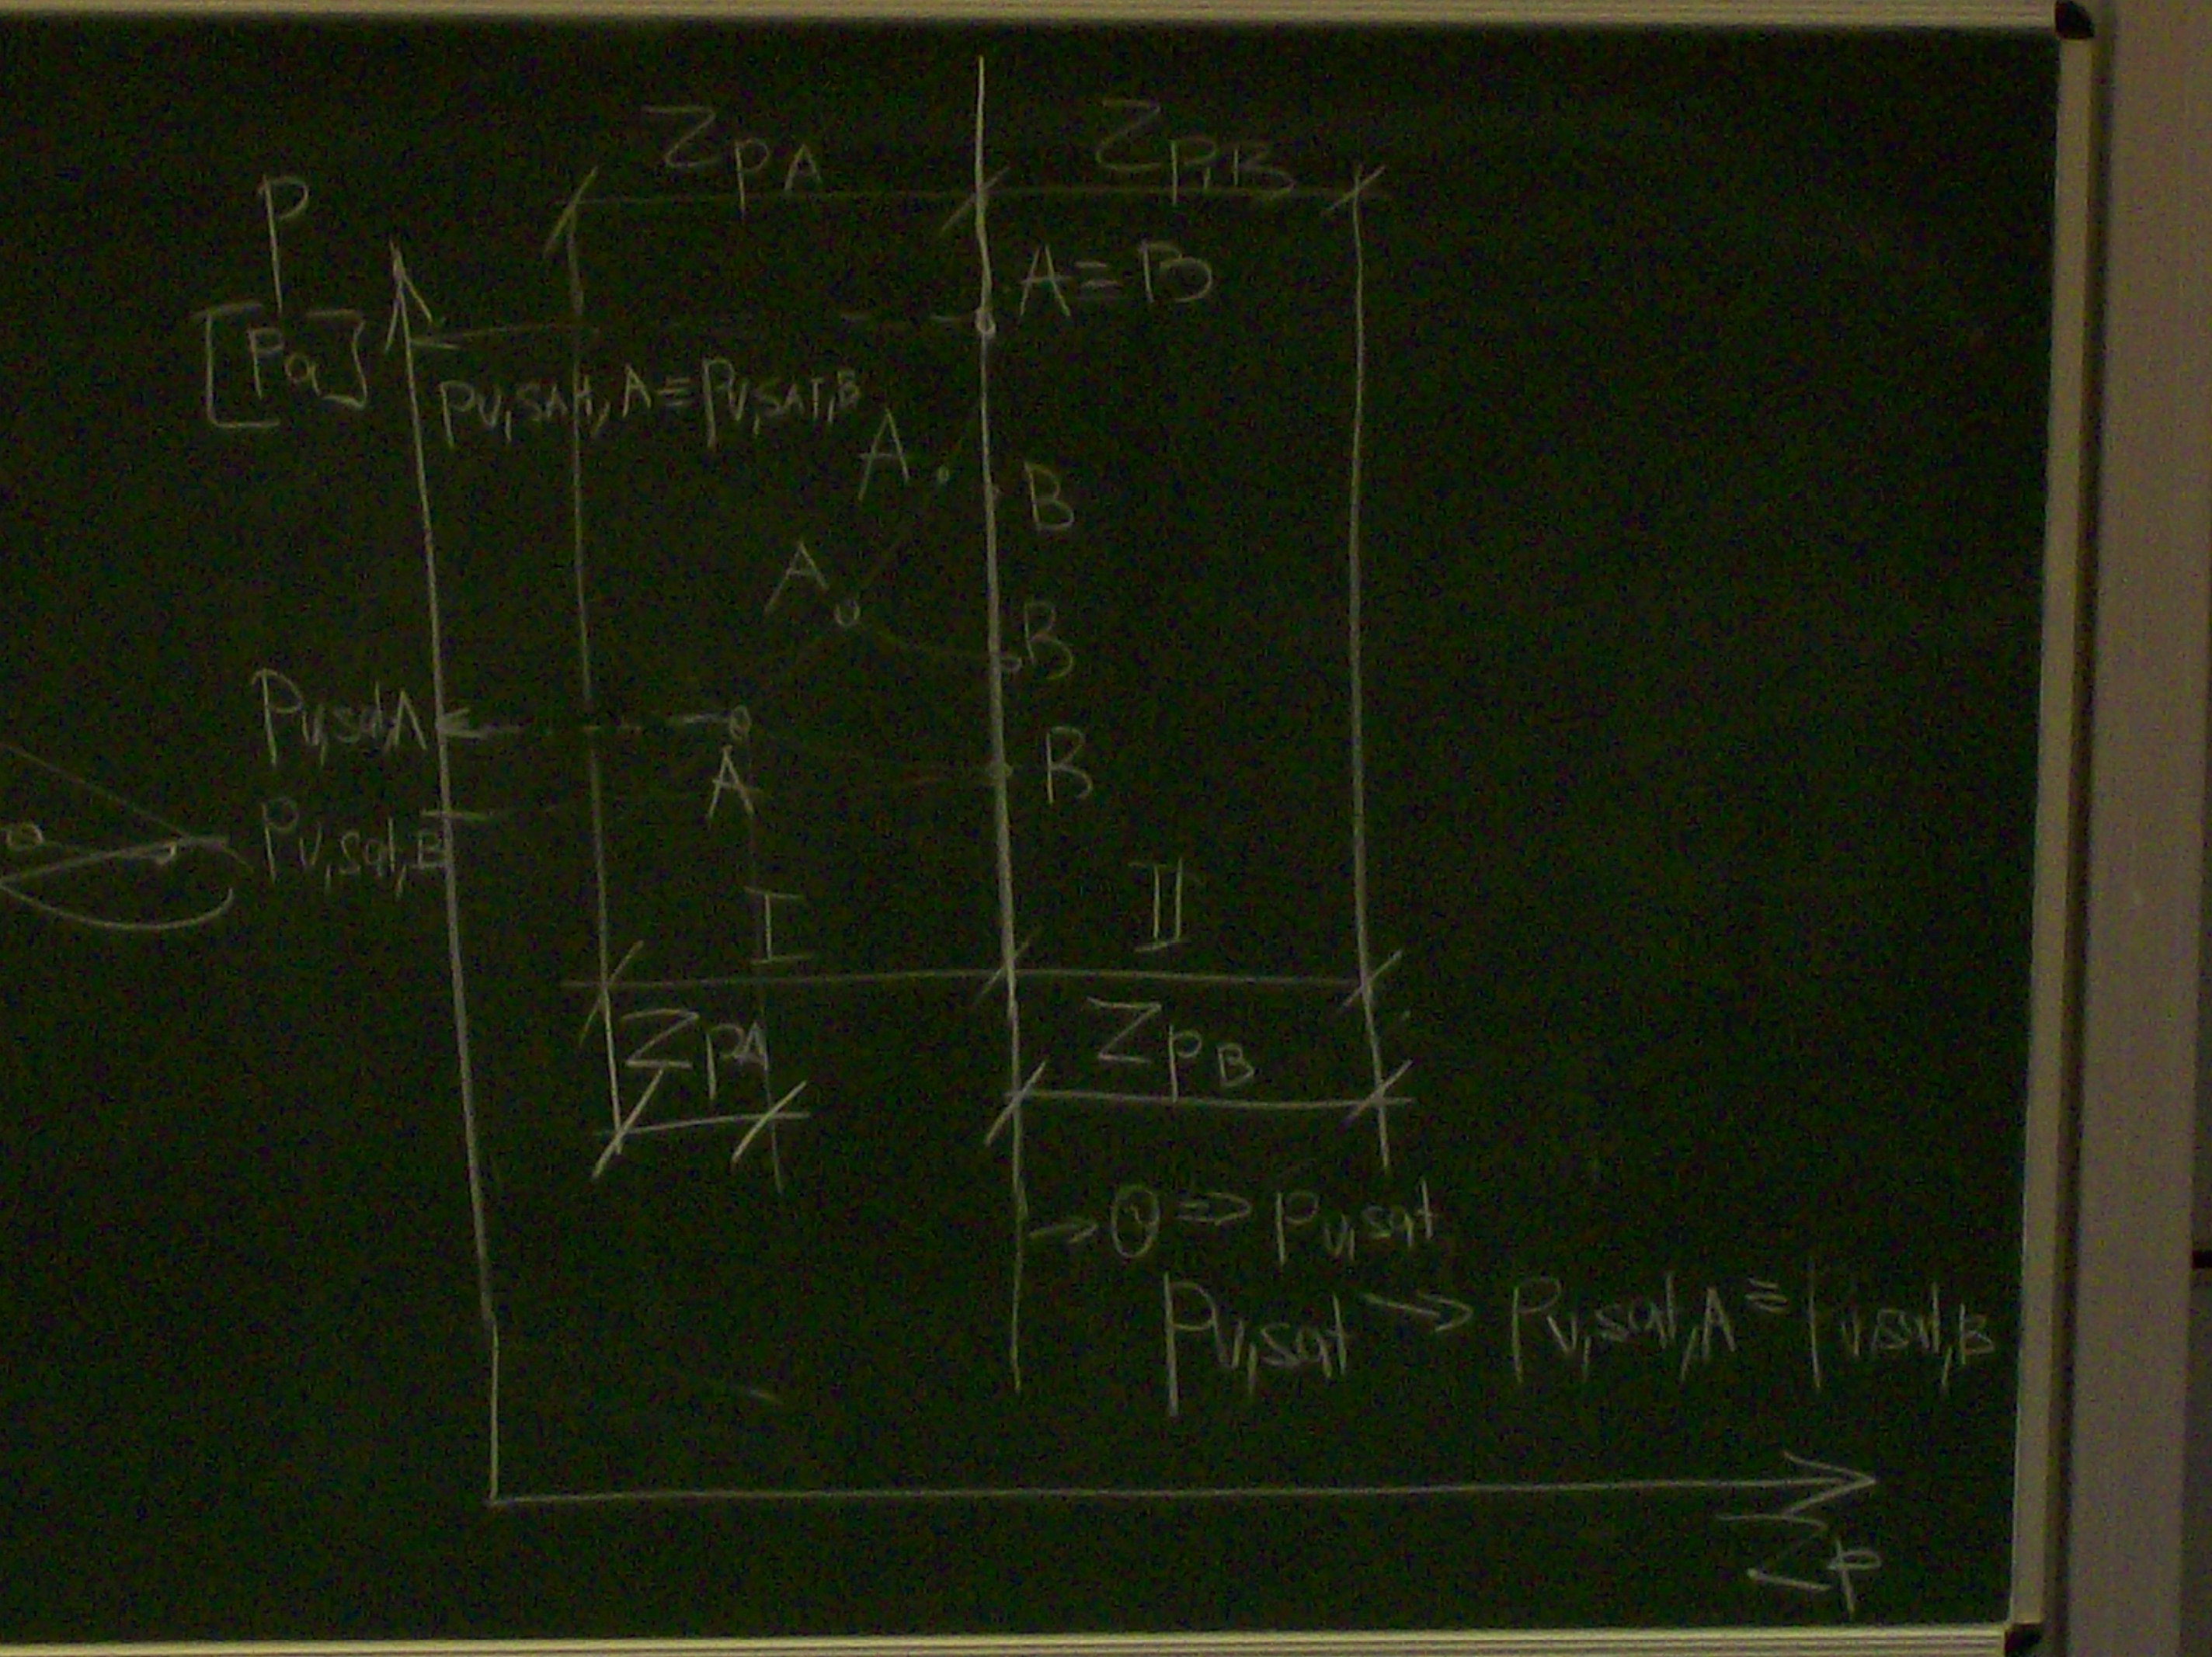 Z_pA Z_p,B
P
[Pa]
A≡B
p_v,sat,A≡p_v,sat,B
A
B
A
B
p_v,sat,A
A
B
p_v,sat,B
I II
Z_pA Z_pB
→ θ ⇒ p_v,sat
p_v,sat → p_v,sat,A ≡ p_v,sat,B
Z_p